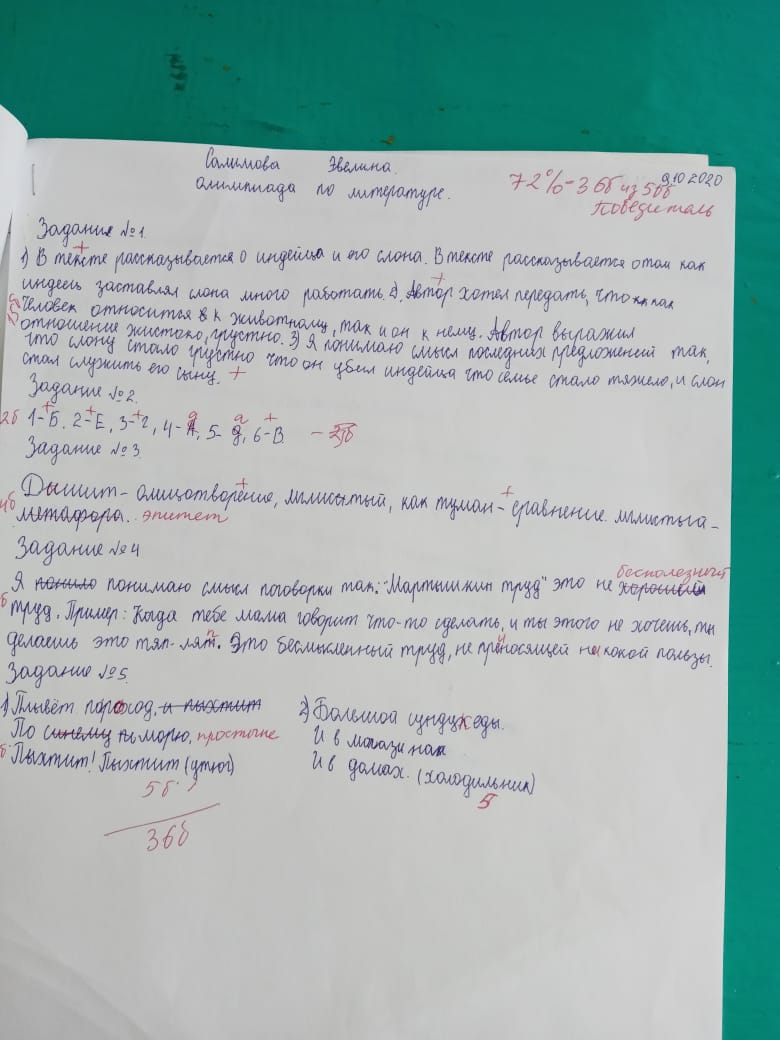 Салимова Эвелина.
Олимпиада по литературе.
9.10 2020
72% - 36б из 50б
Победитель
Задание №1.
1) В тексте рассказывается о индейца и его слона. В тексте рассказывается о том как
индеец заставлял слона много работать. 2). Автор хотел передать, что как
человек относится к животному, так и он к нему. Автор выразил
отношение жистоко, грустно. 3) Я понимаю смысл последних предложений так,
что слону стало грустно что он убил индейца что семье стало тяжело, и слон
стал служить его сыну. +
Задание №2.
2б 1-Б, 2-Е, 3-г, 4-А, 5-д, 6-В.
Задание №3.
4б Дышит - олицотворение, мглисытый, как туман - сравнение. мглистыга -
метафора. эпитет
Задание №4
бесполезный
Я понило понимаю смысл поговорки так: "Мартышкин труд" это не хороший
труд. Пример: Когда тебе мама говорит что-то сделать, и ты этого не хочешь, ты
делаешь это тяп-ляп. Это бесмысленный труд, не приносящей никокой пользы.
Задание №5.
1) Плывёт пароход, и пыхтит
По синему морю, простыне
Пыхтит! Пыхтит (утюг)
5б
36б
2) Большой сундук еды.
И в магазинах
И в домах. (холодильник)
5